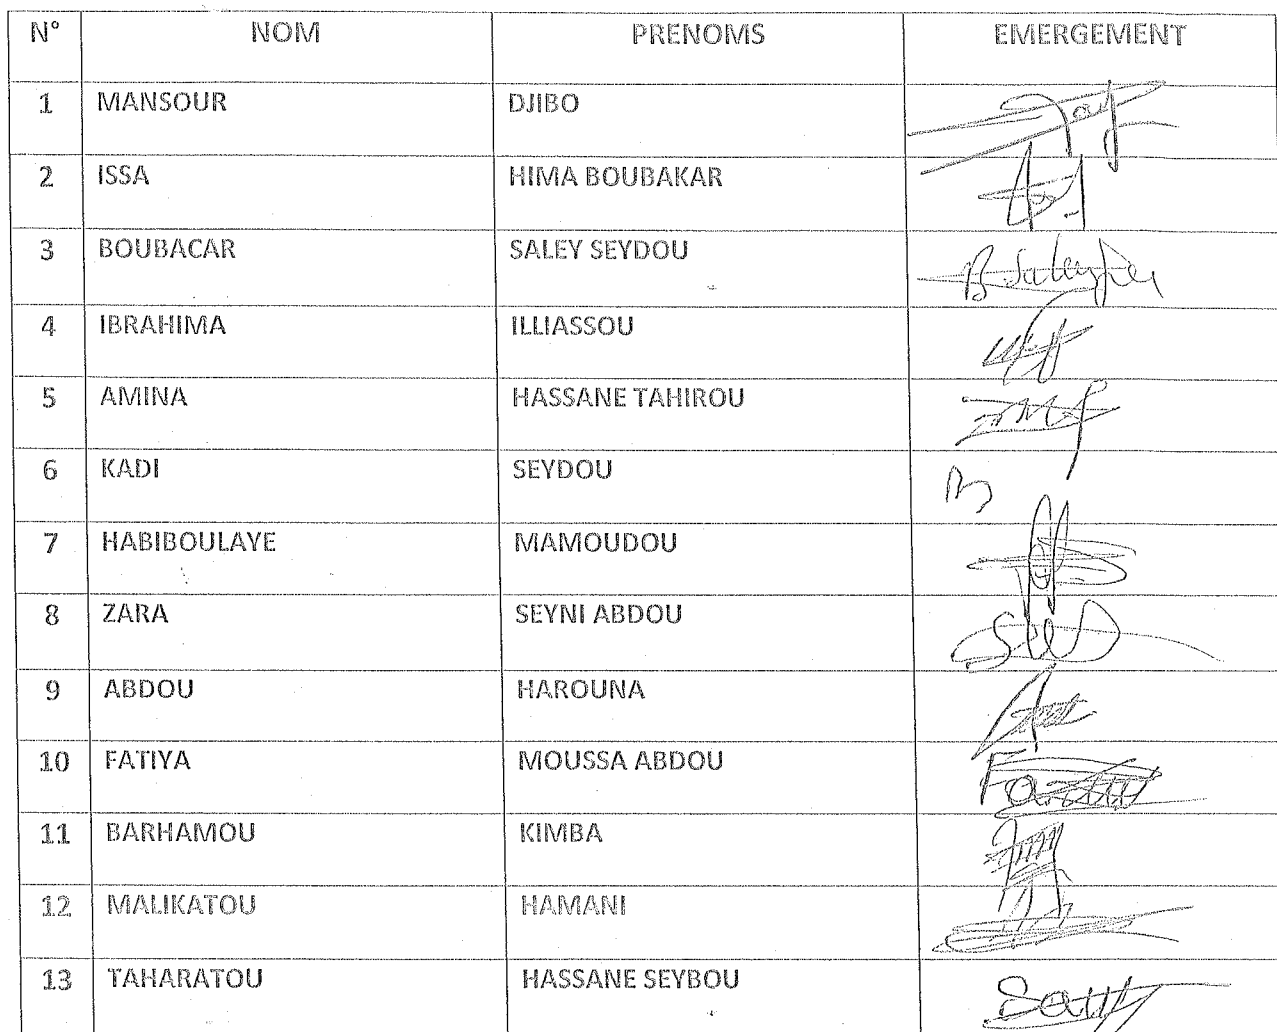 N° NOM PRENOMS EMERGEMENT
1 MANSOUR DJIBO
2 ISSA HIMA BOUBAKAR
3 BOUBACAR SALEY SEYDOU B Saley
4 IBRAHIMA ILLIASSOU
5 AMINA HASSANE TAHIROU
6 KADI SEYDOU
7 HABIBOULAYE MAMOUDOU
8 ZARA SEYNI ABDOU
9 ABDOU HAROUNA
10 FATIYA MOUSSA ABDOU
11 BARHAMOU KIMBA
12 MALIKATOU HAMANI
13 TAHARATOU HASSANE SEYBOU